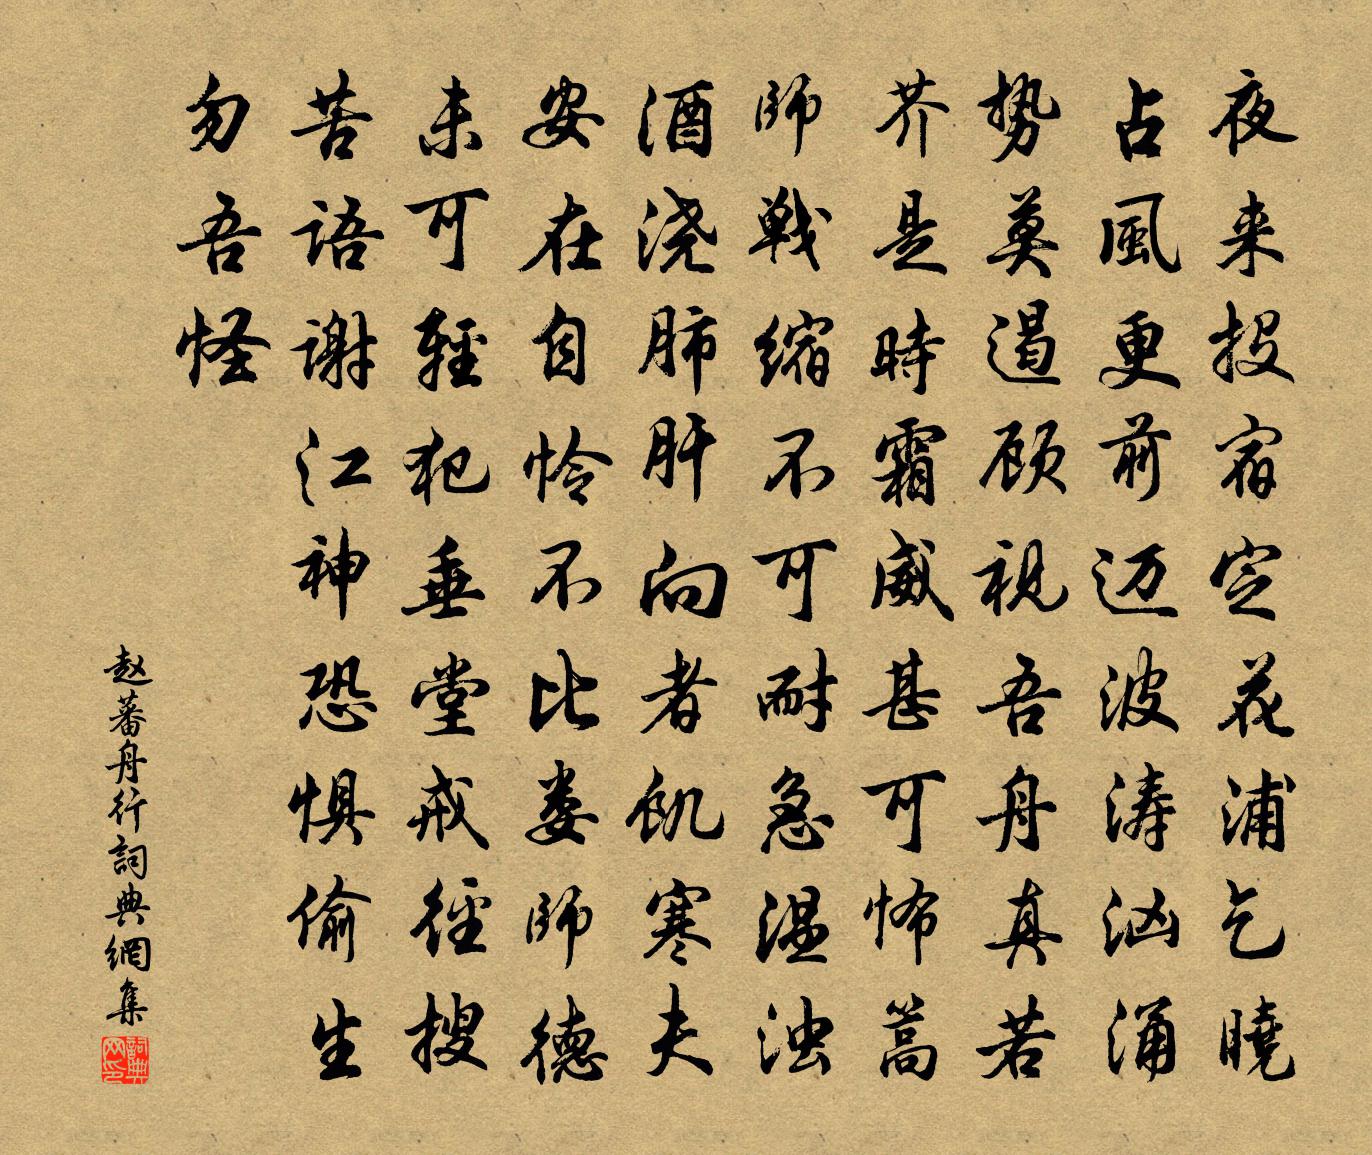 夜来投宿定花浦乞曉
占風更前迈波涛汹涌
势莫遏顾視吾舟真若
芥是時霜威甚可怖篙
師戦缩不可耐急温浊
酒浇肺肝向者飢寒夫
安在自怜不比娄師德
未可輕犯垂堂戒径搜
苦語谢江神恐惧偷生
勿吾怪
赵蕃舟行詞典網集
詞典网印